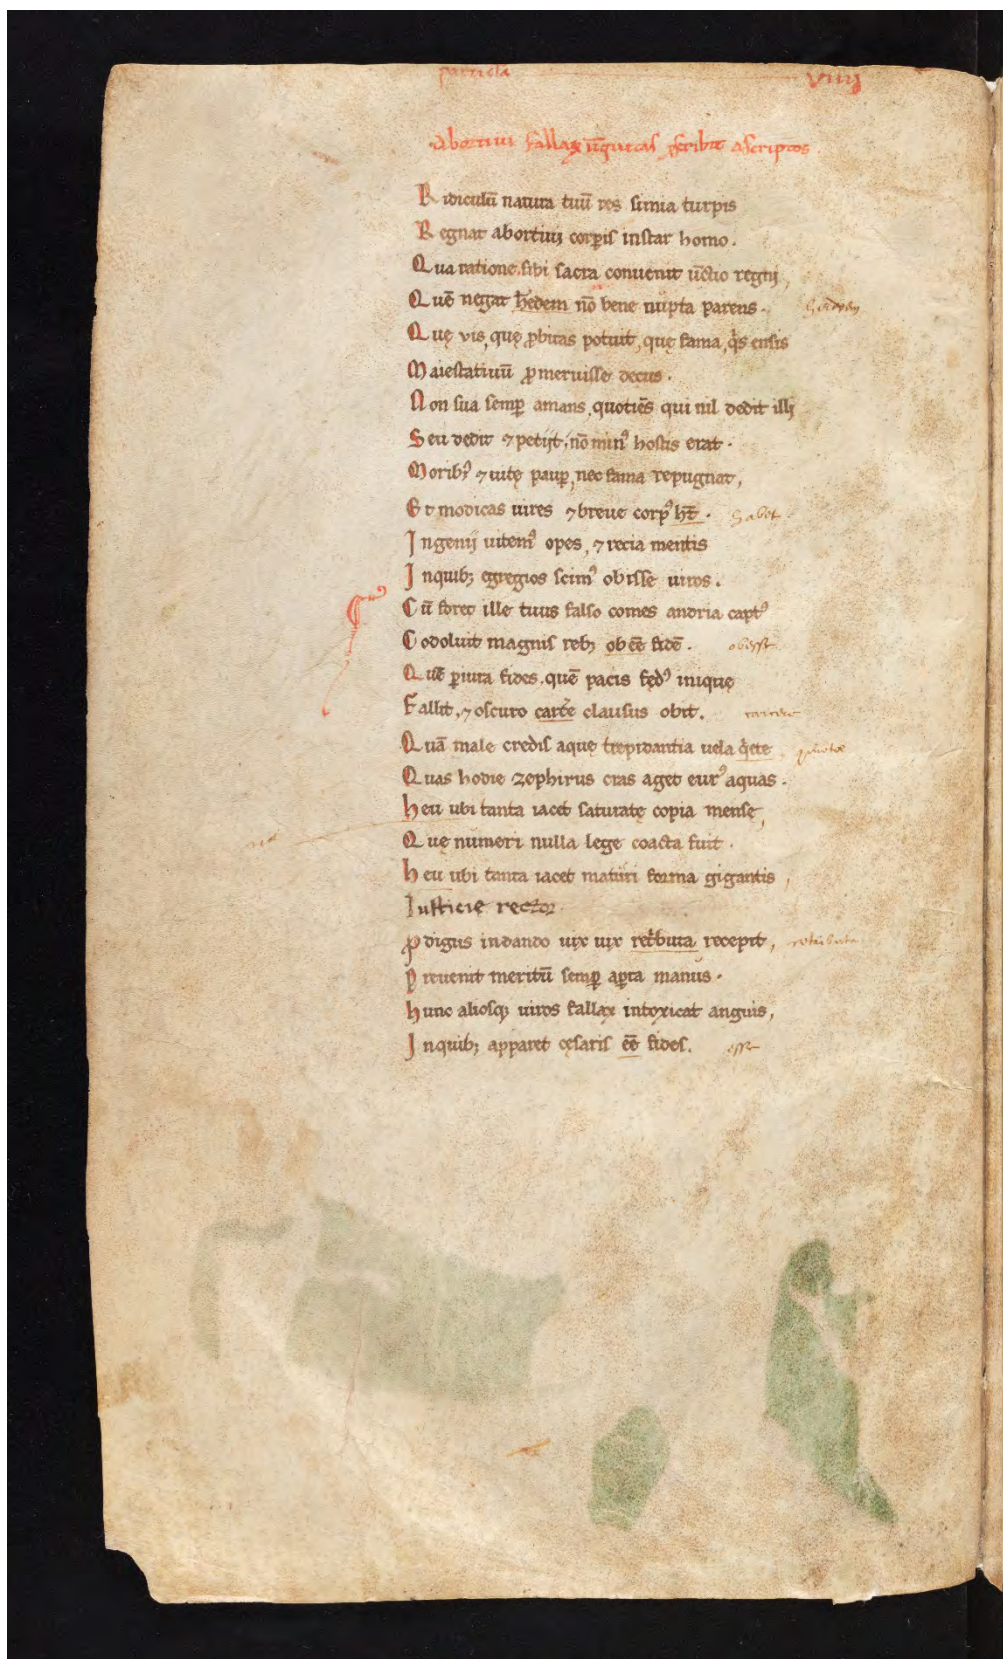 particla VIIIJ
Abortiui fallax ūguitas ꝯscribit ascriptos
Ridiculū natura tuū res simia turpis
Regnat abortiuꝫ corꝑis instar homo.
Qua ratione sibi sacra conuenit ūctio regnj
Quē negat h̄edem nō bene nupta parens. heredem
Quę vis, quę ꝓbitas potuit, quę fama, q̇s ensis
Maiestatiuū ꝓmeruisse decus.
Non sua semꝑ amans, quotiēs qui nil dedit illj
Seu dedit ⁊ petijt, nō minꝰ hostis erat.
Moribꝰ ⁊ uitę pauꝑ, nec fama repugnat,
Et modicas uires ⁊ breue corpꝰ ht̄. habet
Ingenij uitemꝰ opes, ⁊ recia mentis
Inquibꝫ egregios scimꝰ obisse uiros.
Cū foret ille tuus falso comes andria captꝰ
Codoluit magnis rebꝫ obēē fidē. obesse
Quē ꝑiura fides, quē pacis fędꝰ inique
Fallit, ⁊ oscuro carc̄e clausus obit. carcere
Quā male credis aque trepidantia uela q̇ete quiete
Quas hodie zephirus cras aget eurꝰ aquas.
Heu ubi tanta iacet saturatę copia mense,
Quę numeri nulla lege coacta fuit.
Heu ubi tanta iacet maturi forma gigantis,
Iusticie rector
Ꝓdigus indando uix uix ret̄buta recepit, retributa
P̄reuenit meritū semꝑ aꝑta manus.
Hunc aliosqꝫ uiros fallax intoxicat anguis,
Inquibꝫ apparet cęsaris ēē fides. esse